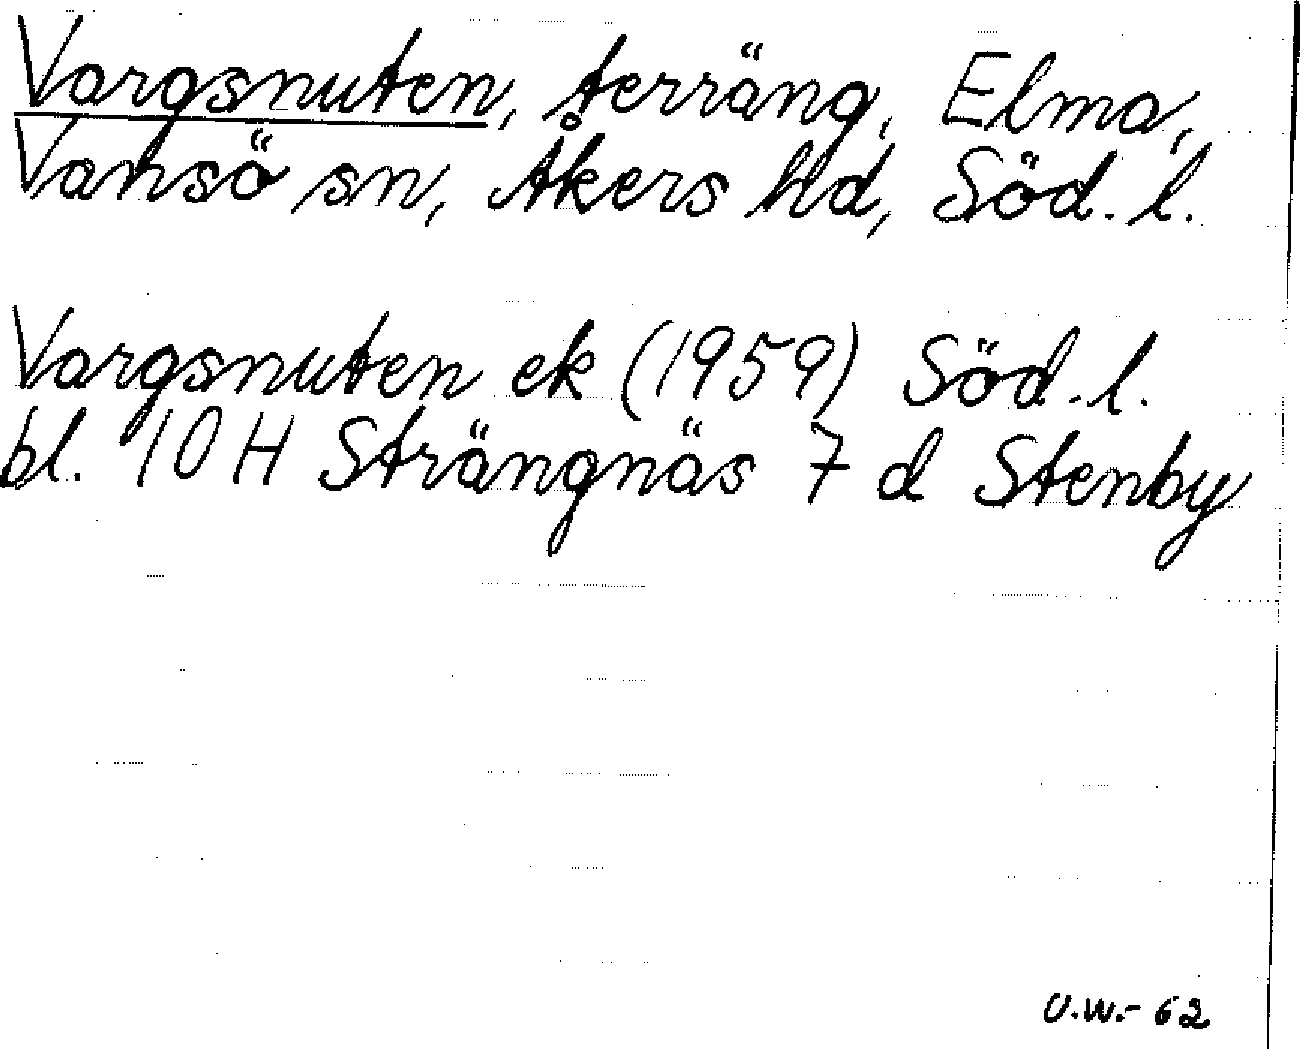 Vargsnuten, terräng, Elma,
Vansö sn, Åkers hd, Söd. l.
Vargsnuten ek (1959) Söd. l.
bl. 10 H Strängnäs 7 d Stenby
U.W.- 62